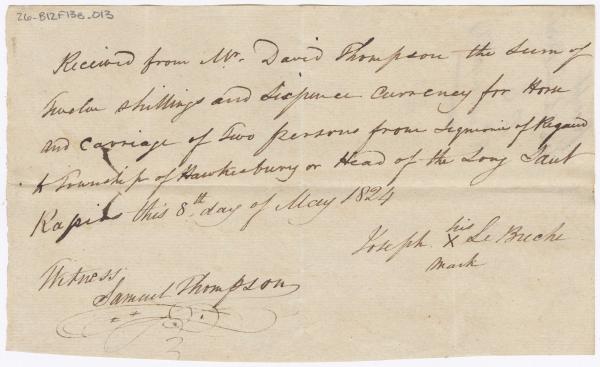 26-B12F13B-013
Received from Mr. David Thompson the Sum of
Twelve shillings and Sixpence currency for Horse
and carriage of Two persons from Segniorie of Regaud
to Township of Hawkesbury or Head of the Long Sault
Rapids this 8th day of May 1824
Joseph his X Le Buche
mark
Witness
Samuel Thompson